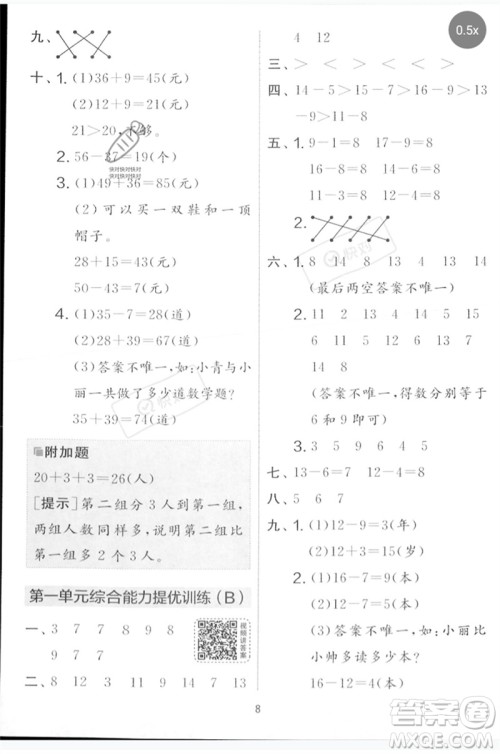 九、
十、1. (1)36+9=45(元)
(2)12+9=21(元)
21>20,不够。
2. 56-37=19(个)
3. (1)49+36=85(元)
(2)可以买一双鞋和一顶
帽子。
28+15=43(元)
50-43=7(元)
4. (1)35-7=28(道)
(2)28+39=67(道)
(3)答案不唯一,如:小青与小
丽一共做了多少道数学题?
35+39=74(道)
附加题
20+3+3=26(人)
[提示]第二组分3人到第一组,
两组人数同样多,说明第二组比
第一组多2个3人。
第一单元综合能力提优训练(B)
一、3 7 7 8 9 9 8
9 7 7
视频讲答案
二、8 12 3 11 7 14 7 13
4 12
三、> < > < <
四、14-5>15-7>16-9
五、1. 9-1=8 17-9=8
16-8=8 15-7=8
11-3=8
2.
六、1. 8 14 8 13 5 13 14
(最后两空答案不唯一)
2. 11 12 13 14 15
6 11 5 12 4 13
14 8
和9即可)
3. 3 5 9 6 4 5
七、13-6=7 12-4=8
八、5 6 7
九、1. (1)12-9=3(年)
(2)12+3=15(岁)
2. (1)16-7=9(本)
(2)17-9=8(本)
(3)答案不唯一,如:小丽比
小帅多读多少本?
16-12=4(本)
8
0.5x
快对
答案圈
MXQE.COM